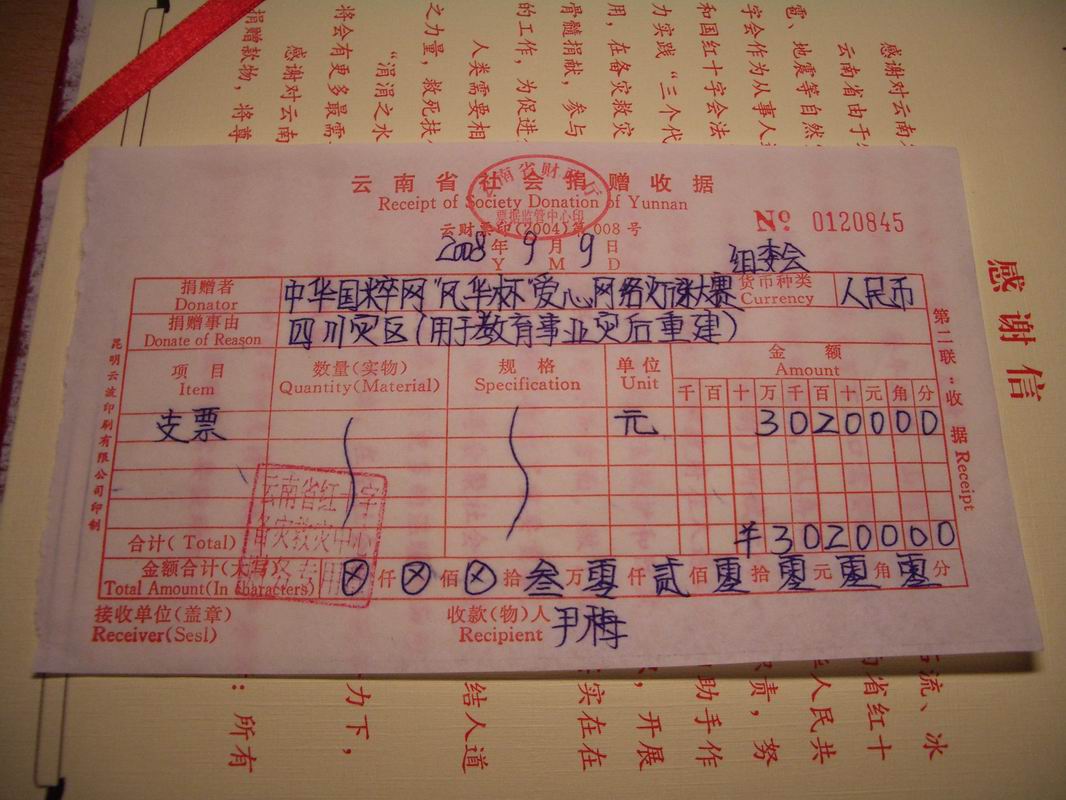 云南省社会捐赠收据
Receipt of Society Donation of Yunnan
云财票印(2004)第008号
票据监管中心印
№ 0120845
2008年9月9日
Y M D
组委会
捐赠者 中华国粹网“风华杯”爱心网络灯谜大赛 货币种类 人民币
Donator Currency
捐赠事由 四川灾区(用于教育事业灾后重建)
Donate of Reason
项目 数量(实物) 规格 单位 金额
Item Quantity(Material) Specification Unit Amount
千 百 十 万 千 百 十 元 角 分
支票 元 30200000
合计(Total) ¥30200000
金额合计(大写) ⊗仟⊗佰⊗拾叁万零仟贰佰零拾零元零角零分
Total Amount(In characters)
云南省红十字
备灾救灾中心
接收单位(盖章) 收款(物)人 尹梅
Receiver(Sesl) Recipient
第二联:收据 Receipt
昆明云波印刷有限公司印制
感谢信
感谢对云南
云南省由于
雷、地震等自然
字会作为从事人道
和国红十字会法
力实践“三个代
用,在备灾救灾
骨髓捐献,参与
的工作,为促进
人类需要相
之力量,救死扶
“涓涓之水
将会有更多最需
感谢对云南
捐赠款物,将尊
流、冰
省红十
人民共
责,努
助手作
,开展
实在在
结人道
力下,
:所有